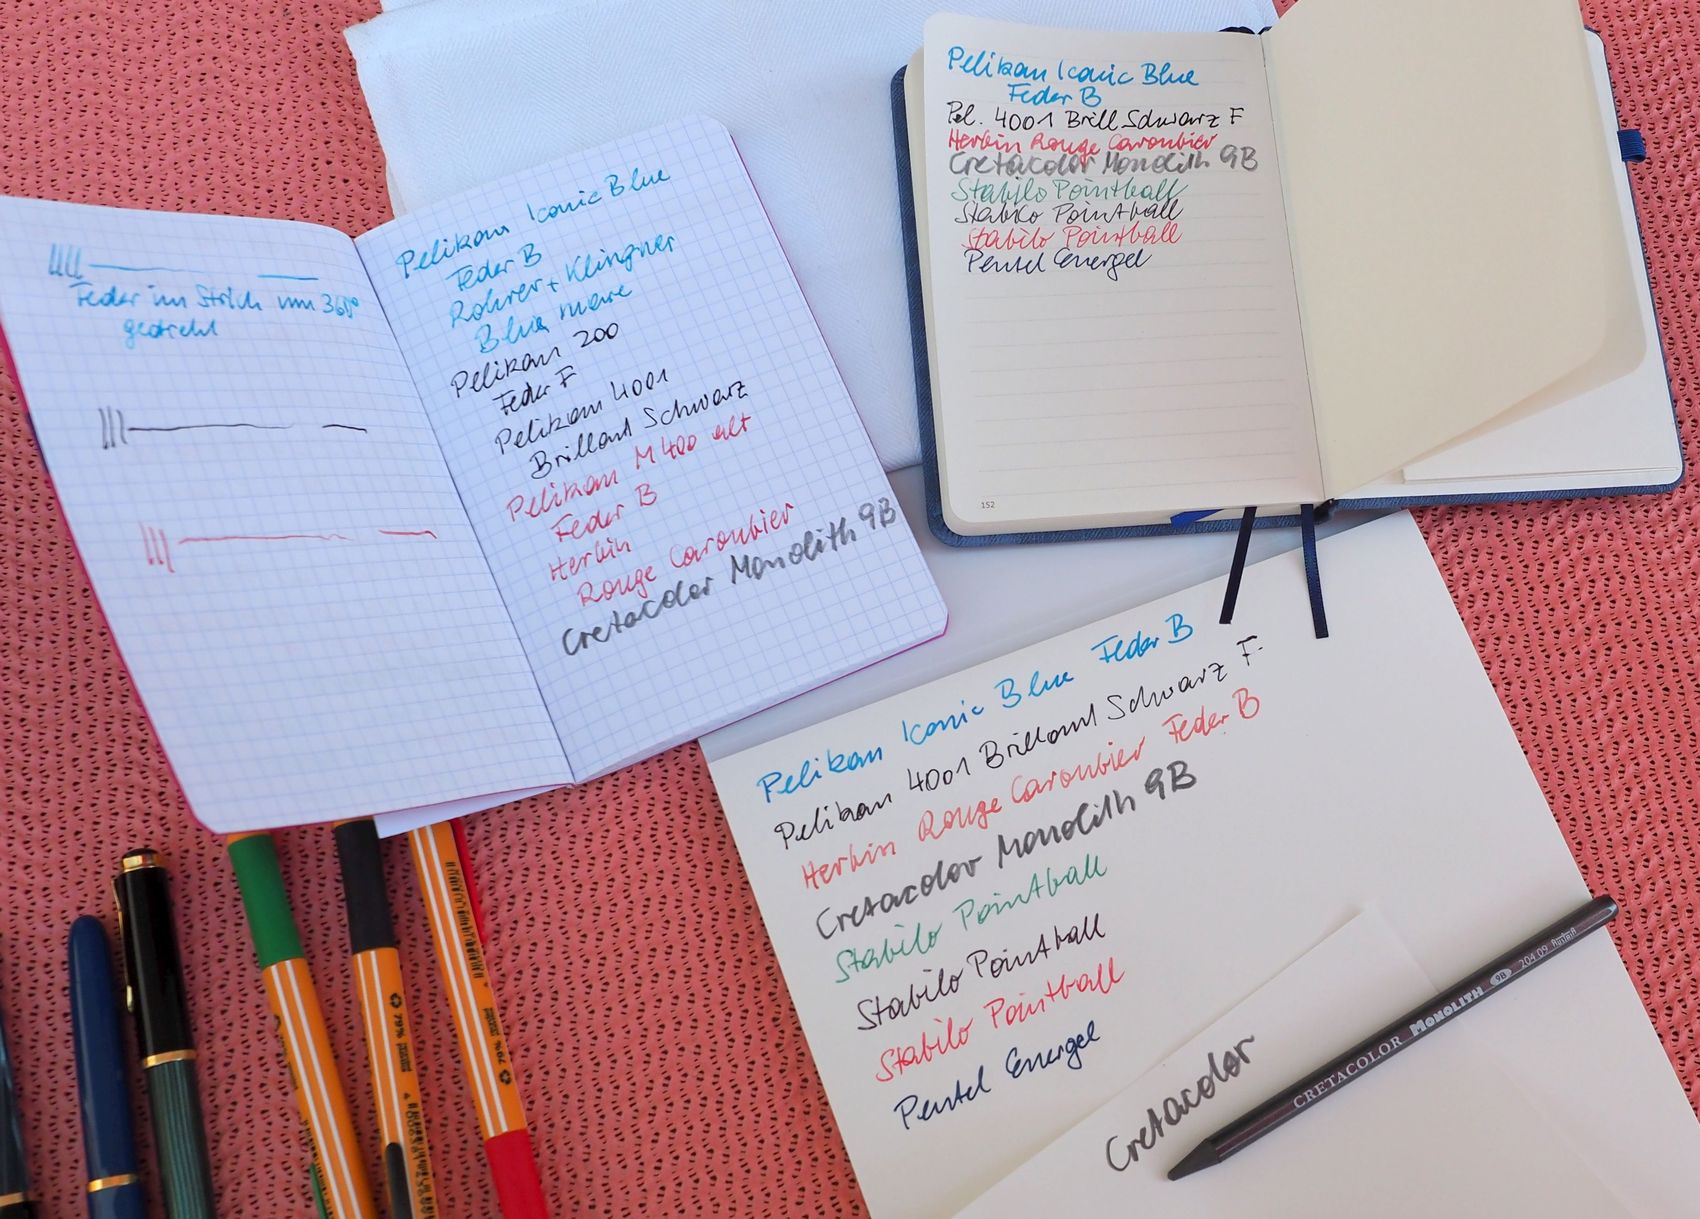 Feder im Strich um 360°
gedreht
Pelikan Iconic Blue
Feder B
Rohrer + Klingner
Blue mare
Pelikan 200
Feder F
Pelikan 4001
Brillant Schwarz
Pelikan M400 alt
Feder B
Herbin
Rouge Caroubier
Cretacolor Monolith 9B
Pelikan Iconic Blue
Feder B
Pel. 4001 Brill Schwarz F
Herbin Rouge Caroubier
Cretacolor Monolith 9B
Stabilo Pointball
Stabilo Pointball
Stabilo Pointball
Pentel Energel
152
Pelikan Iconic Blue Feder B
Pelikan 4001 Brillant Schwarz F
Herbin Rouge Caroubier Feder B
Cretacolor Monolith 9B
Stabilo Pointball
Stabilo Pointball
Stabilo Pointball
Pentel Energel
Cretacolor
CRETACOLOR MONOLITH 9B 204 09
79%
79%